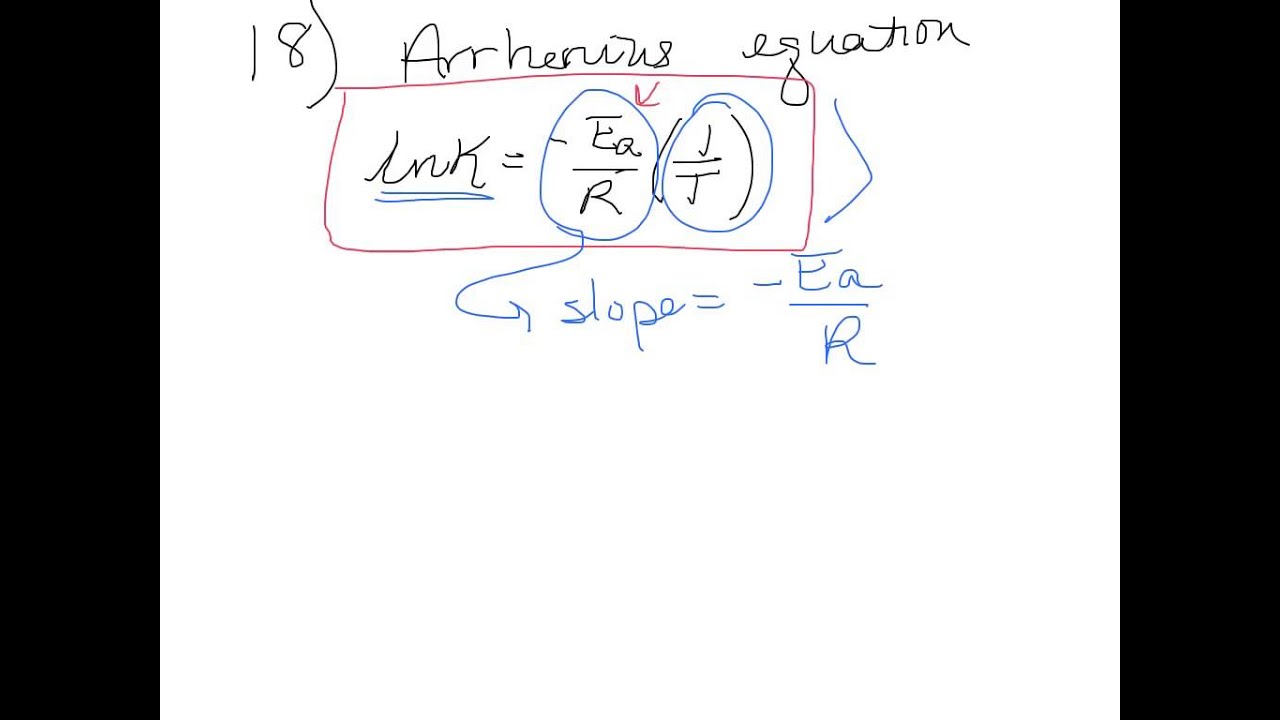 18) Arrhenius equation
lnK = -Ea/R (1/T)
slope = -Ea/R